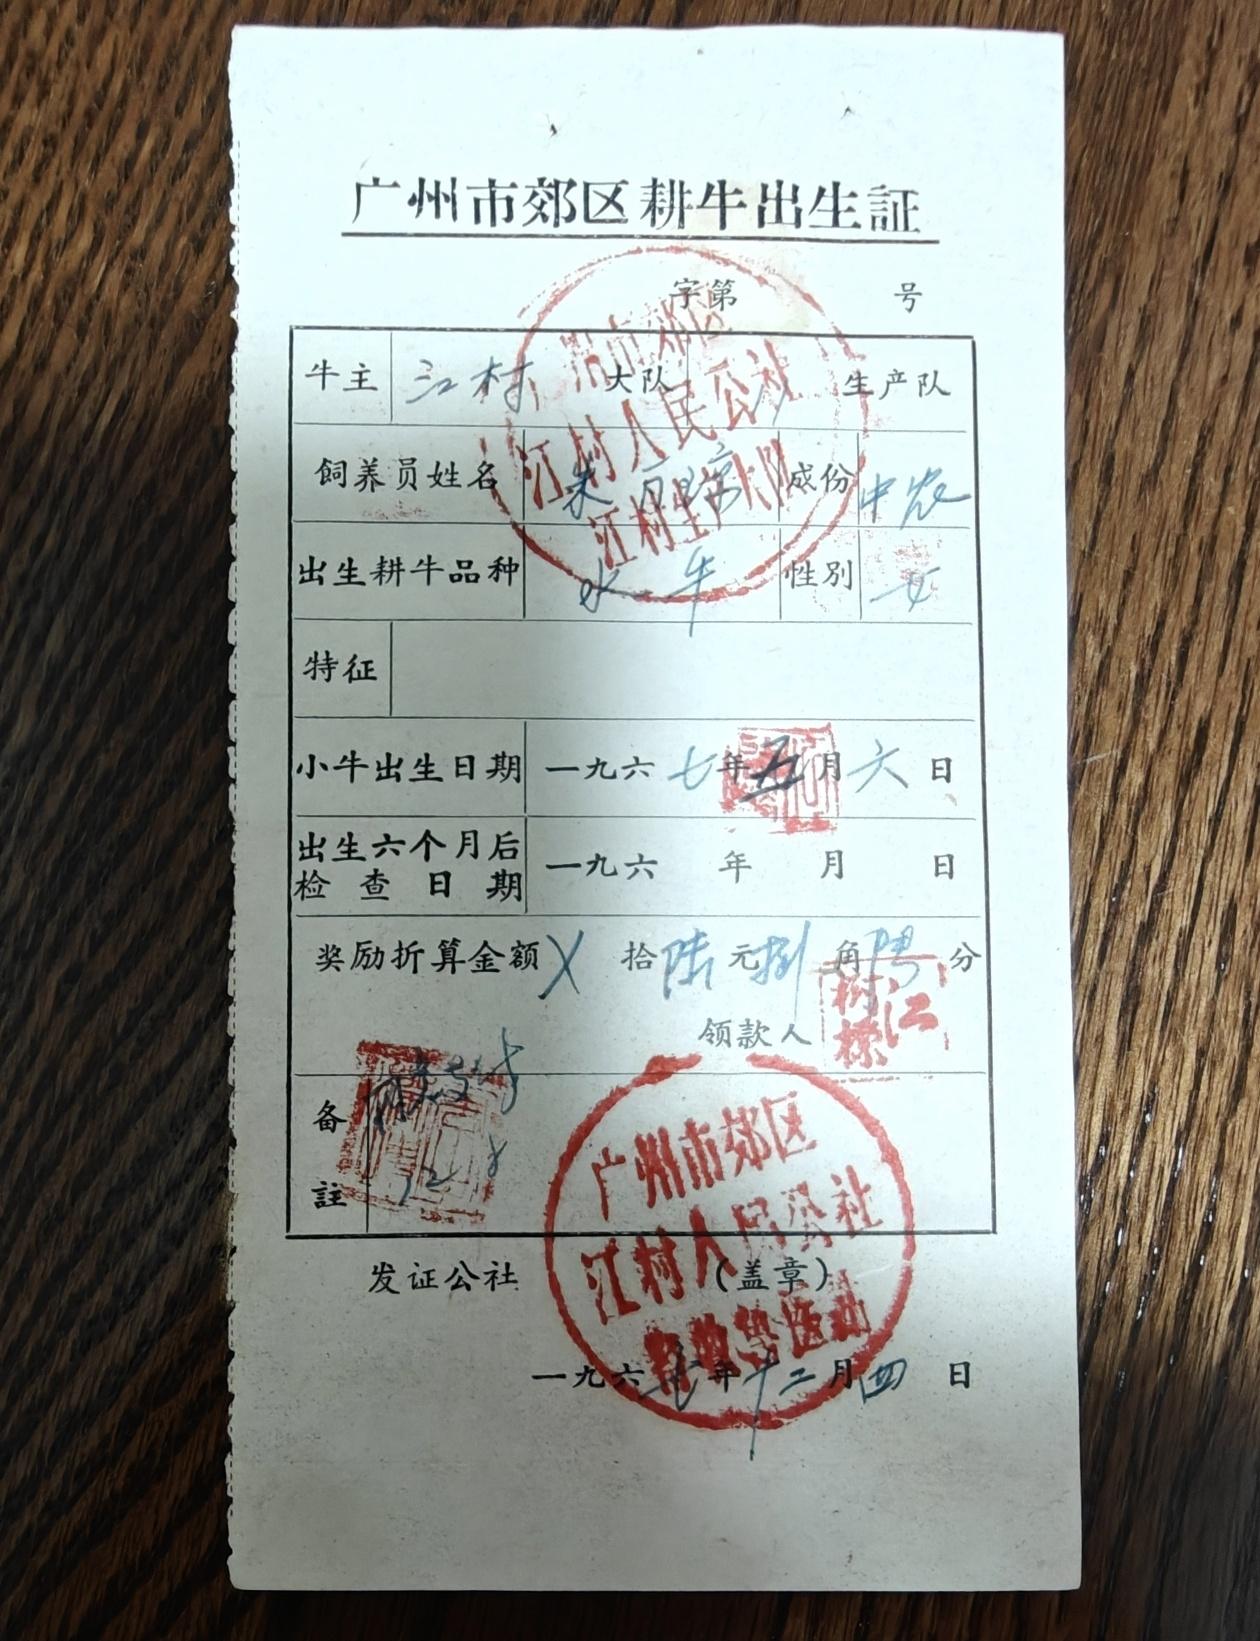 广州市郊区耕牛出生証
字第 号
牛主 江村 大队 生产队
飼养員姓名 朱 成份 中农
出生耕牛品种 水牛 性別 女
特征
小牛出生日期 一九六七年五月六日
出生六个月后
检查日期 一九六 年 月 日
奖励折算金額 X 拾陆元捌角 分
领款人
备
註
发证公社 (盖章)
一九六七年十二月四日
广州市郊区
江村人民公社
江村生产大队
江树樑
广州市郊区
江村人民公社
畜牧兽医站